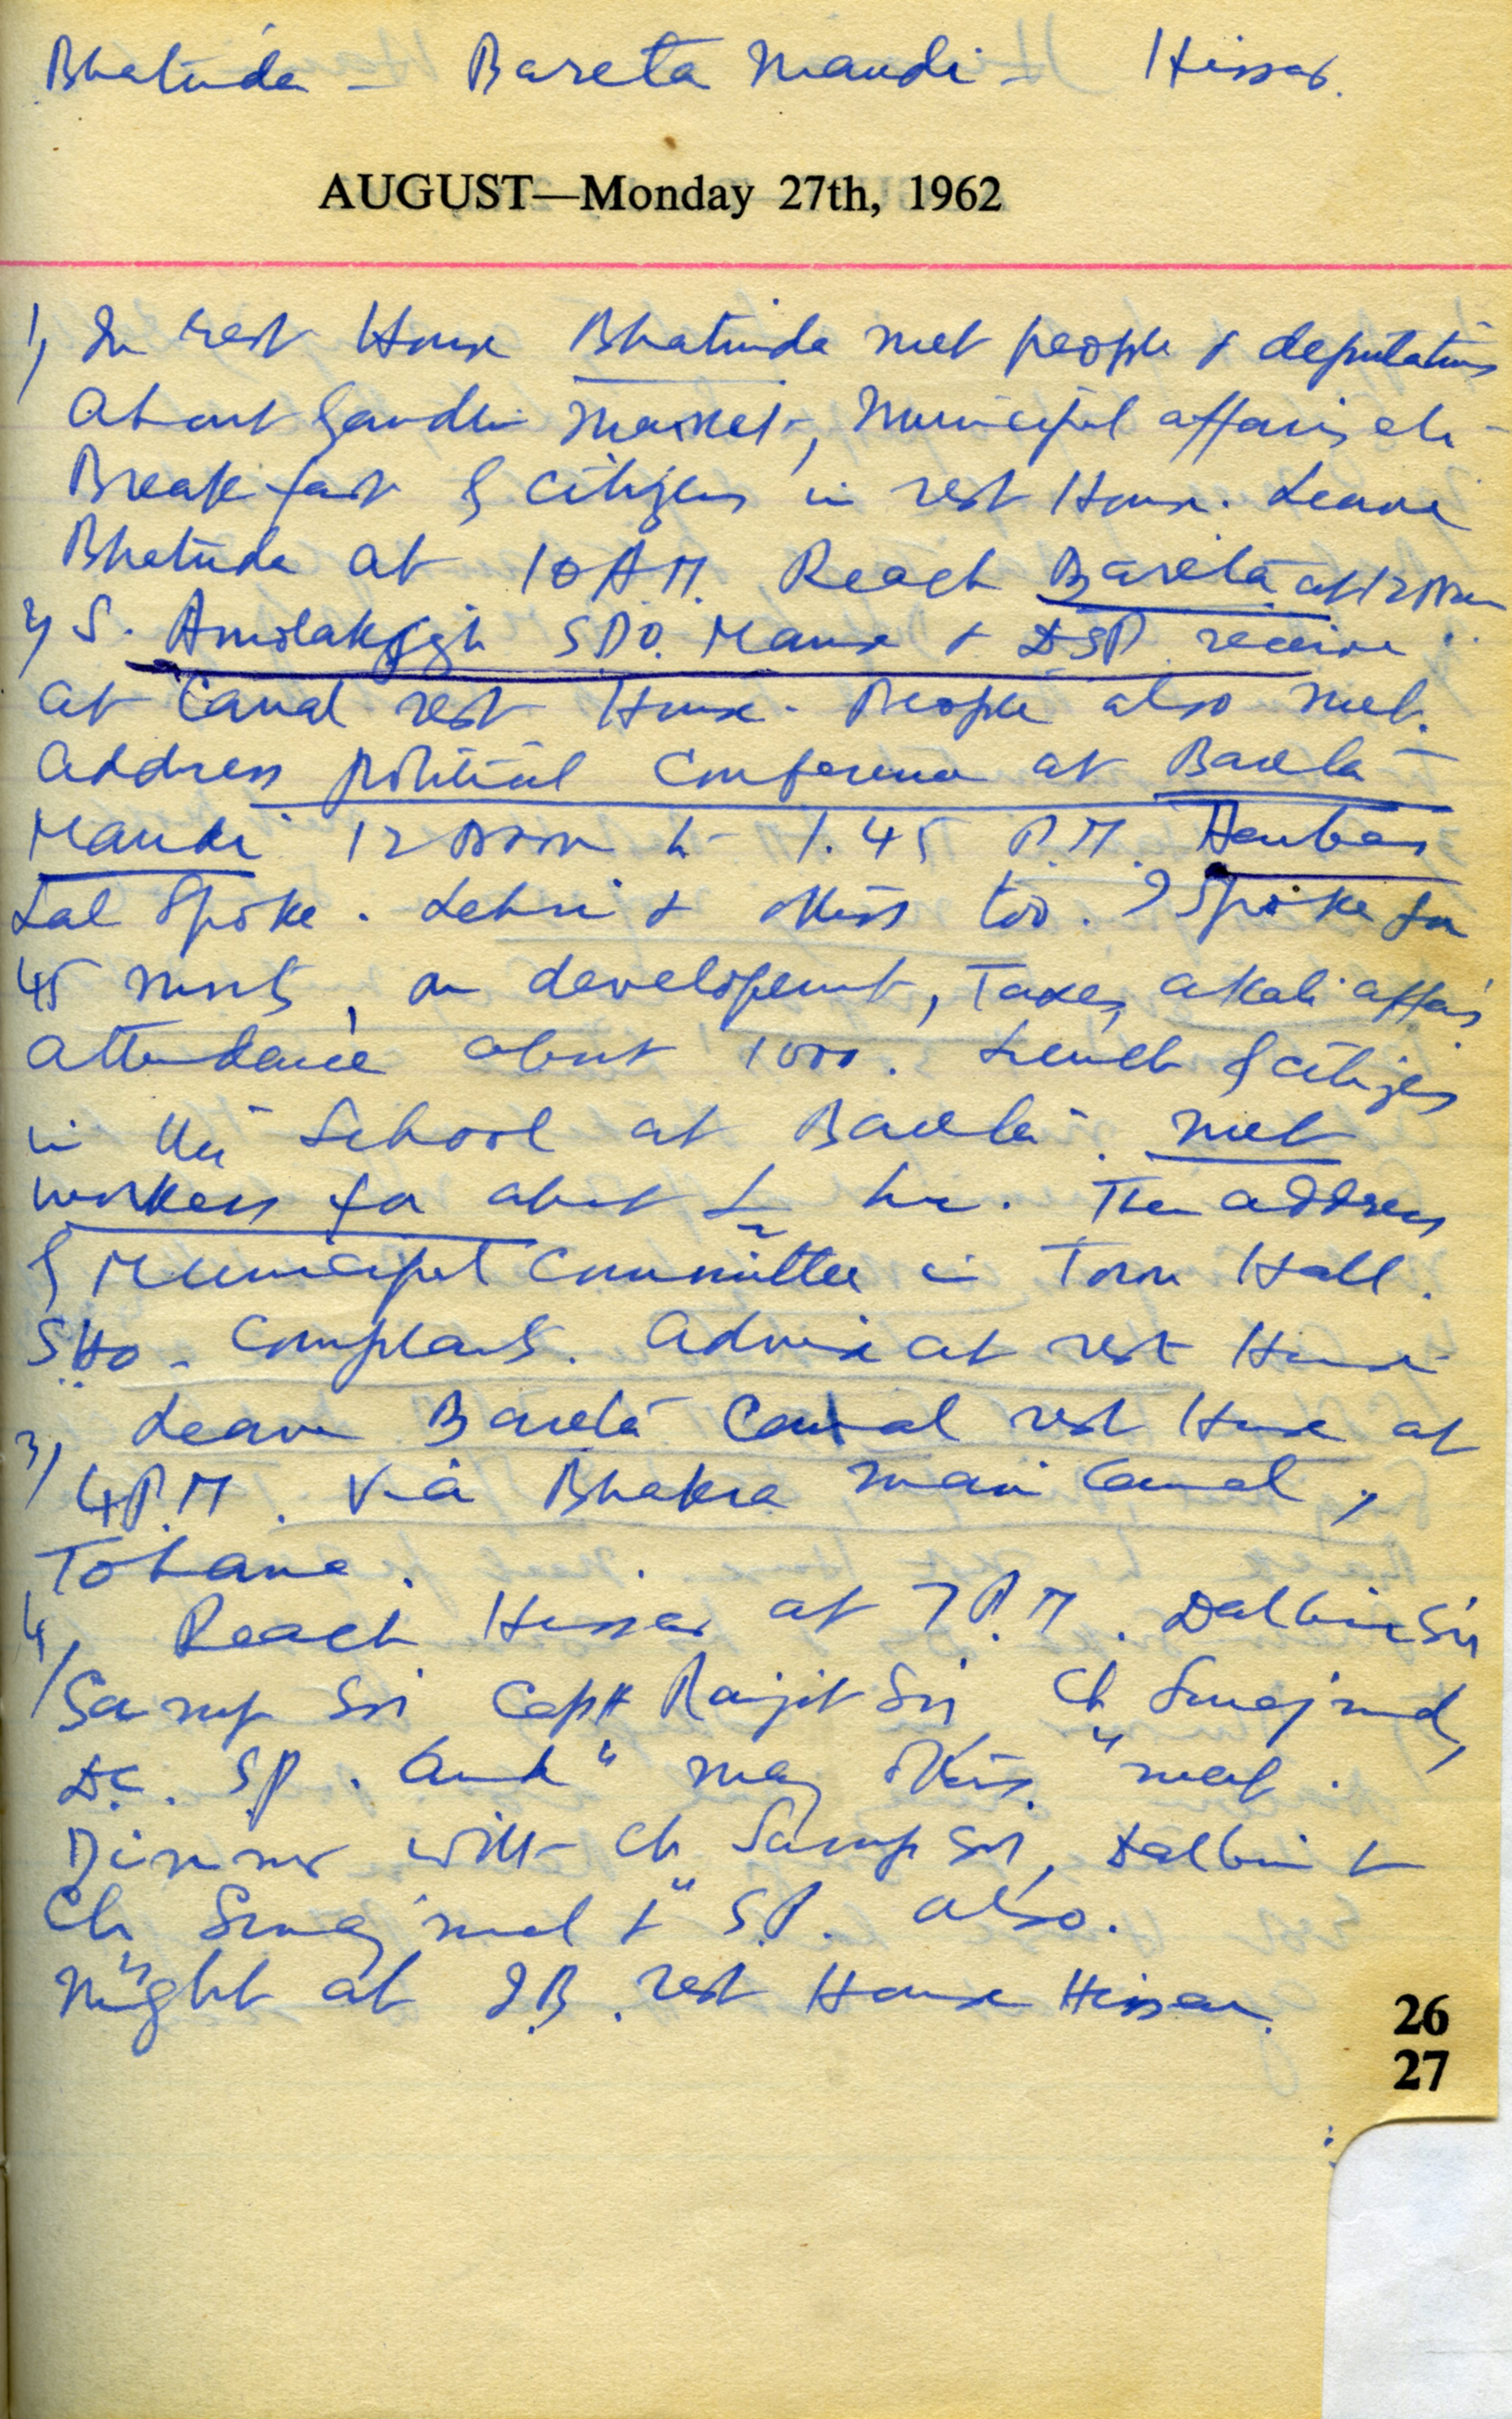 Bhatinda - Bareta Mandi - Hissar.
AUGUST—Monday 27th, 1962
1) In rest House Bhatinda met people & deputations
about Gandhi market, Municipal affairs etc -
Breakfast of citizens in rest House. Leave
Bhatinda at 10 A.M. Reach Bareta at 12 Noon
2) S. SDO. Mansa & DSP. receive
at Canal rest House. People also met.
Address political Conference at Bareta
Mandi 12 Noon to 1.45 P.M. Harbans
Lal spoke. Lehri & others too. I spoke for
45 mnts, on development, Taxes, akali affairs
attendance about 1000. Lunch of citizens
in the School at Bareta. met
workers for about 1/2 hr. Then address
of Municipal Committee in Town Hall.
SHO - Complaints. advise at rest House
3) Leave Bareta Canal rest House at
4 P.M. Via Bhakra main Canal,
Tohana.
4) Reach Hissar at 7 P.M. Dalbir Sin
Sarup Sin Capt Ranjit Sin Ch Surajmal,
D.C. S.P. and many others met.
Dinner with Ch Sarup Sin, Dalbir &
Ch Surajmal & S.P. also.
Night at I.B. rest House Hissar.
26
27